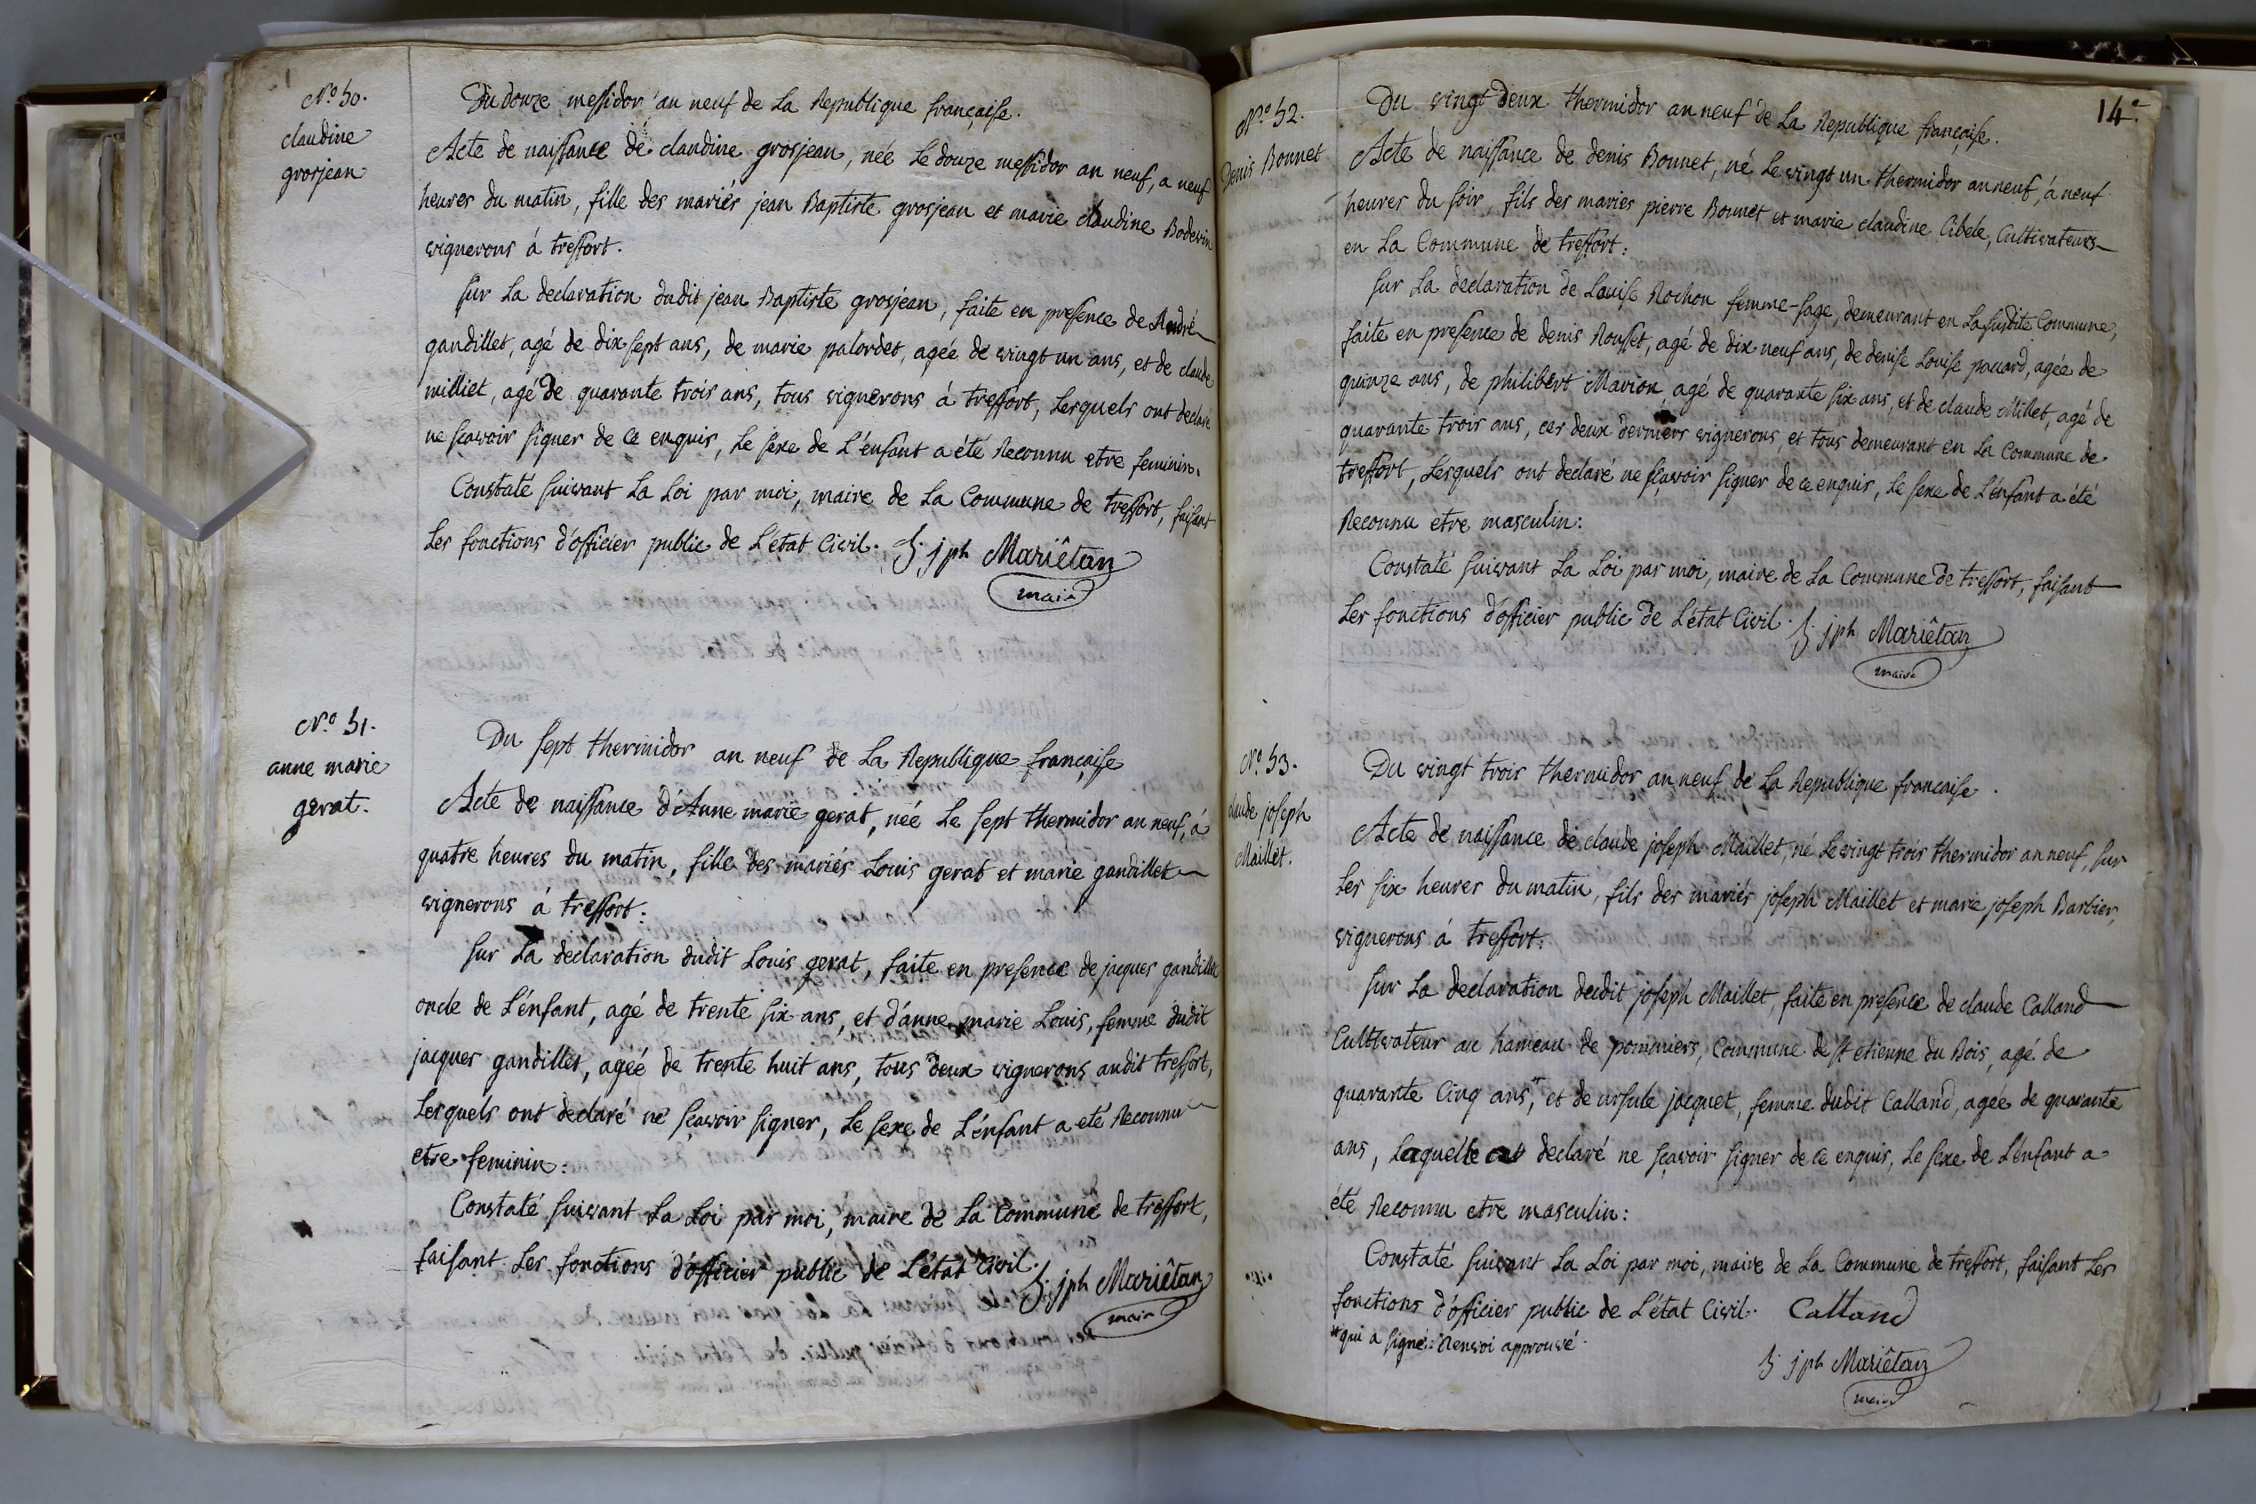 N.o 50.
claudine
grosjean
Du douze messidor an neuf de La Republique française.
Acte de naissance de claudine grosjean, née Le douze messidor an neuf, a neuf
heures du matin, fille des mariés jean Baptiste grosjean et marie claudine Bodevin
vignerons á treffort.
Sur La declaration dudit jean Baptiste grosjean, faite en presence de André
gandillet, agé de dix sept ans, de marie palordet, agée de vingt un ans, et de claude
milliet, agé de quarante trois ans, tous vignerons á treffort, Lesquels ont declaré
ne sçavoir signer de ce enquis, Le sexe de L'énfant a été Reconnu etre feminin.
Constaté suivant La Loi par moi, maire de La Commune de treffort, faisant
Les fonctions d'officier public de L'état Civil. jph Mariêtan
maire
N.o 51.
anne marie
gerat.
Du sept thermidor an neuf de La Republique française
Acte de naissance d'Anne marie gerat, née Le sept thermidor an neuf, á
quatre heures du matin, fille des mariés Louis gerat et marie gandillet
vignerons á treffort:
Sur La declaration dudit Louis gerat, faite en presence de jacques gandillet
oncle de L'énfant, agé de trente six ans, et d'anne marie Louis, femme dudit
jacques gandillet, agéé de trente huit ans, tous deux vignerons audit treffort,
Lesquels ont declaré ne sçavoir signer, Le sexe de L'énfant a eté Reconnu
etre feminin:
Constaté suivant La Loi par moi, maire de La Commune de treffort,
faisant Les fonctions d'officier public de L'état Civil. jph Mariêtan
maire
14.e
N.o 52.
Denis Bonnet
Du vingt deux thermidor an neuf de La Republique française.
Acte de naissance de denis Bonnet, né Le vingt un thermidor an neuf, á neuf
heures du soir, fils des mariés pierre Bonnet et marie claudine Cibele, Cultivateurs
en La Commune de treffort:
Sur La declaration de Louise Rochon femme-sage, demeurant en La susdite Commune,
faite en presence de denis Rousset, agé de dix neuf ans, de denise Louise pauard, agée de
quinze ans, de philibert Marion agé de quarante six ans, et de claude Millet, agé de
quarante trois ans, ces deux derniers vignerons, et tous demeurant en La Commune de
treffort, Lesquels ont declaré ne sçavoir signer de ce enquis, Le sexe de L'énfant a été
Reconnu etre masculin:
Constaté suivant La Loi par moi, maire de La Commune de treffort, faisant
Les fonctions d'officier public de L'état Civil. jph Mariêtan
maire
N.o 53.
claude joseph
Maillet.
Du vingt trois thermidor an neuf de La Republique française.
Acte de naissance de claude joseph Maillet, né Le vingt trois thermidor an neuf, sur
Les six heures du matin, fils des mariés joseph Maillet et marie joseph Barbier,
vignerons á treffort:
Sur La declaration dudit joseph Maillet, faite en presence de claude Calland
Cultivateur au hameau de pommiers, Commune de st etienne du Bois, agé de
quarante Cinq ans,* et de ursule jacquet, femme dudit Calland, agée de quarante
ans, Laquelle a declaré ne sçavoir signer de ce enquis, Le sexe de L'énfant a
été Reconnu etre masculin:
Constaté suivant La Loi par moi, maire de La Commune de treffort, faisant Les
fonctions d'officier public de L'état Civil. Calland
*qui a signé: Renvoi approuvé.
jph Mariêtan
maire